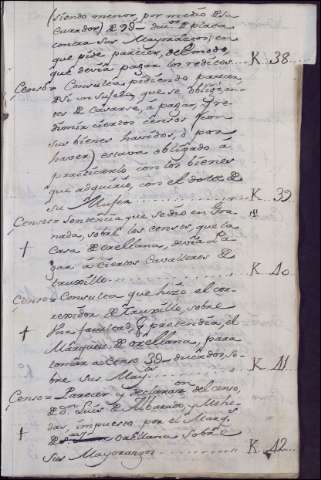 (siendo menor, por medio de su
Curador) de 22 duc.s de plata
contra sus Mayorazgos) en
que pide parecer, del modo
que devia pagar los reditos. K. 38.
Censo = Consulta, pidiendo parecer,
de si un sujeto, que se obligo an-
tes de casarse, a pagar, y re-
dimir ciertos censos (con
sus bienes havidos, o por
haver) estava obligado a
practicarlo con los bienes
que adquirio, con el dote de
su Muger K. 39
Censo = Sentencia que se dio en Gra-
nada, sobre los censos, que la
+ Casa de Orellana, devia pa-
gar a ciertos Cavalleros de
truxillo K. 40
Censo = Consulta que hizo el cor-
regidor de Truxillo, sobre
+ Una facultad, q pretendia, el
Marques de Orellana, para
tomar a censo 3D ducados, so-
bre sus May.gos K. 41
Censo = Parecer y declaraz.on del censo,
de D.n Luis de
impuesto, por el Marq.s
+ de Orellana sobre
sus Mayorazgos K. 42